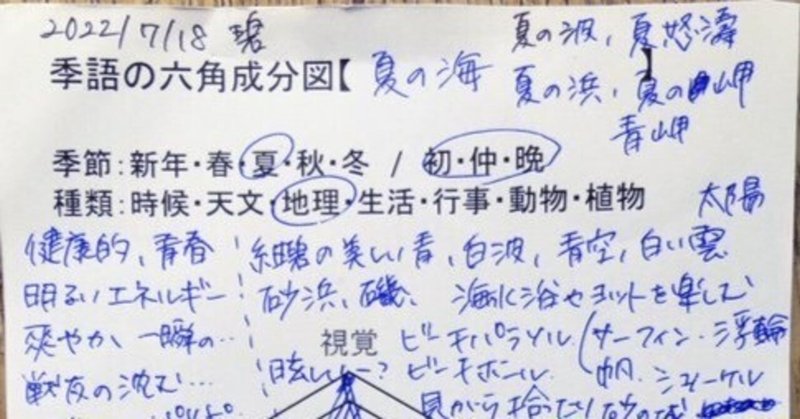 2022/7/18 碧
夏の波、夏怒濤
季語の六角成分図【 夏の海 】
夏の浜、夏の岬
青岬
季節:新年・春・夏・秋・冬 / 初・仲・晩
種類:時候・天文・地理・生活・行事・動物・植物
太陽
健康的、青春
紺碧の美しい青、白波、青空、白い雲
明るいエネルギー
砂浜、磯、海水浴やヨットを楽しむ
爽やか、一瞬の…
視覚
ビーチパラソル (サーフィン・浮輪
戦友の沈む…
眩しい〜?
ビーチボール 帆、シュノーケル